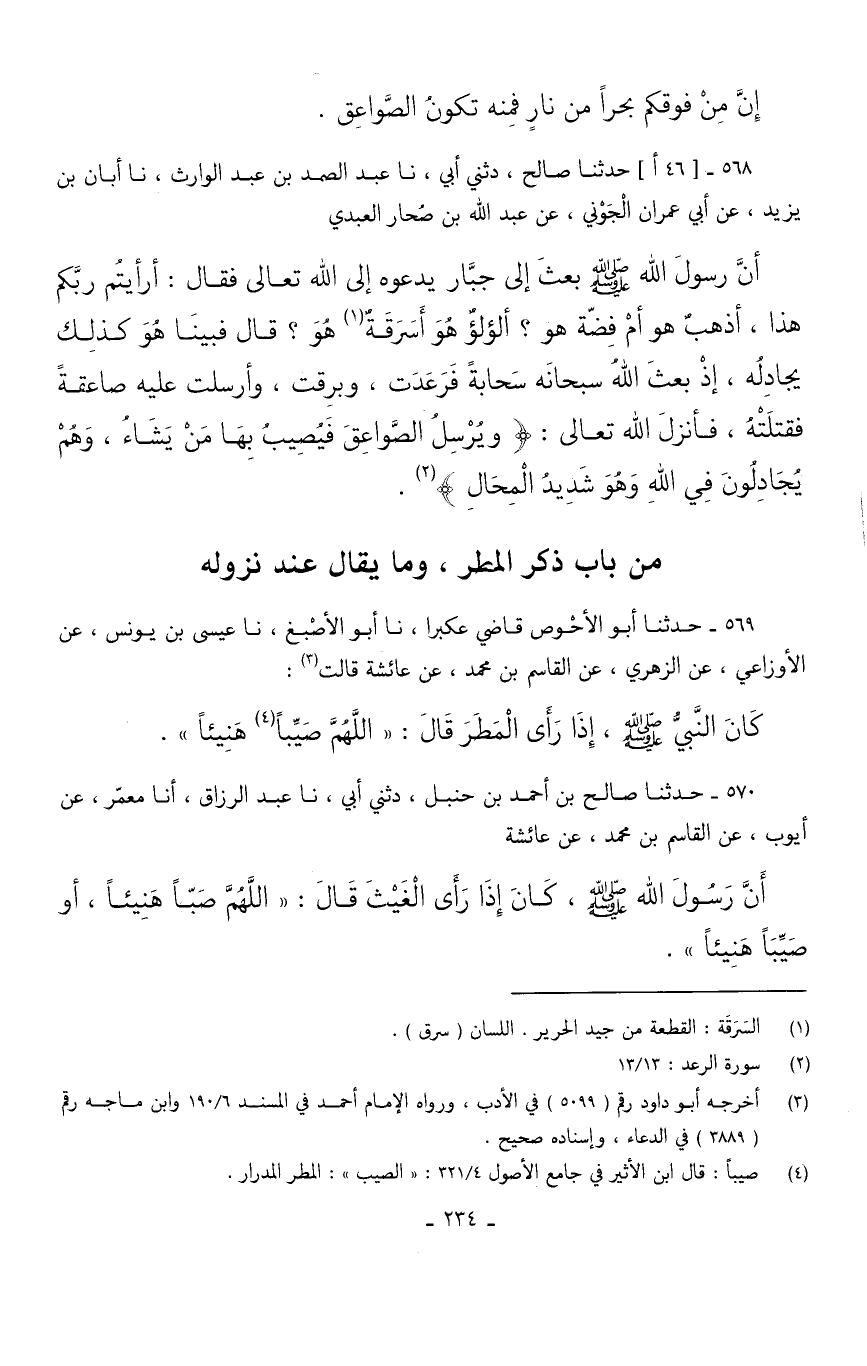 إنَّ مِنْ فوقكم بحراً من نارٍ فمنه تكونُ الصَّواعِق .
٥٦٨ ـ [ ٤٦ أ ] حدثنا صالح ، دثني أبي ، نا عبد الصمد بن عبد الوارث ، نا أبان بن
يزيد ، عن أبي عمران الْجَوْني ، عن عبد الله بن صُحار العبدي
أنَّ رسولَ الله ﷺ بعثَ إلى جبَّار يدعوه إلى الله تعالى فقال : أرأيتُم ربَّكم
هذا ، أذهبٌ هو أمْ فِضّة هو ؟ ألؤلؤٌ هُوَ أَسَرَقَةٌ(١) هُوَ ؟ قال فبينَا هُوَ كذلِك
يجادِلُه ، إذْ بعثَ اللهُ سبحانَه سَحابةً فَرَعَدَت ، وبرقت ، وأرسلت عليه صاعقةً
فقتلَتْهُ ، فأنزلَ الله تعالى : ﴿ ويُرْسِلُ الصَّواعِقَ فَيُصِيبُ بِهَا مَنْ يَشَاءُ ، وَهُمْ
يُجَادِلُونَ فِي اللهِ وَهُوَ شَدِيدُ الْمِحَالِ ﴾(٢) .
من باب ذكر المطر ، وما يقال عند نزوله
٥٦٩ ـ حدثنا أبو الأحْوص قاضي عكبرا ، نا أبو الأصْبغ ، نا عيسى بن يونس ، عن
الأوزاعي ، عن الزهري ، عن القاسم بن محمد ، عن عائشة قالت(٣) :
كَانَ النَّبيُّ ﷺ ، إِذَا رَأَى الْمَطَرَ قَالَ : « اللَّهُمَّ صَيِّباً(٤) هَنِيئاً » .
٥٧٠ ـ حدثنا صالح بن أحمد بن حنبل ، دثني أبي ، نا عبد الرزاق ، أنا معمّر ، عن
أيوب ، عن القاسم بن محمد ، عن عائشة
أَنَّ رَسُولَ الله ﷺ ، كَانَ إِذَا رَأَى الْغَيْثَ قَالَ : « اللَّهُمَّ صَبّاً هَنِيئاً ، أو
صَيِّبَاً هَنِيئاً » .
(١) السَرَقَة : القطعة من جيد الحرير . اللسان ( سرق ) .
(٢) سورة الرعد : ١٣/١٣
(٣) أخرجه أبو داود رقم ( ٥٠٩٩ ) في الأدب ، ورواه الإمام أحمد في المسند ١٩٠/٦ وابن ماجه رقم
( ٣٨٨٩ ) في الدعاء ، وإسناده صحيح .
(٤) صيباً : قال ابن الأثير في جامع الأصول ٣٢١/٤ : « الصيب » : المطر المدرار .
ـ ٢٣٤ ـ